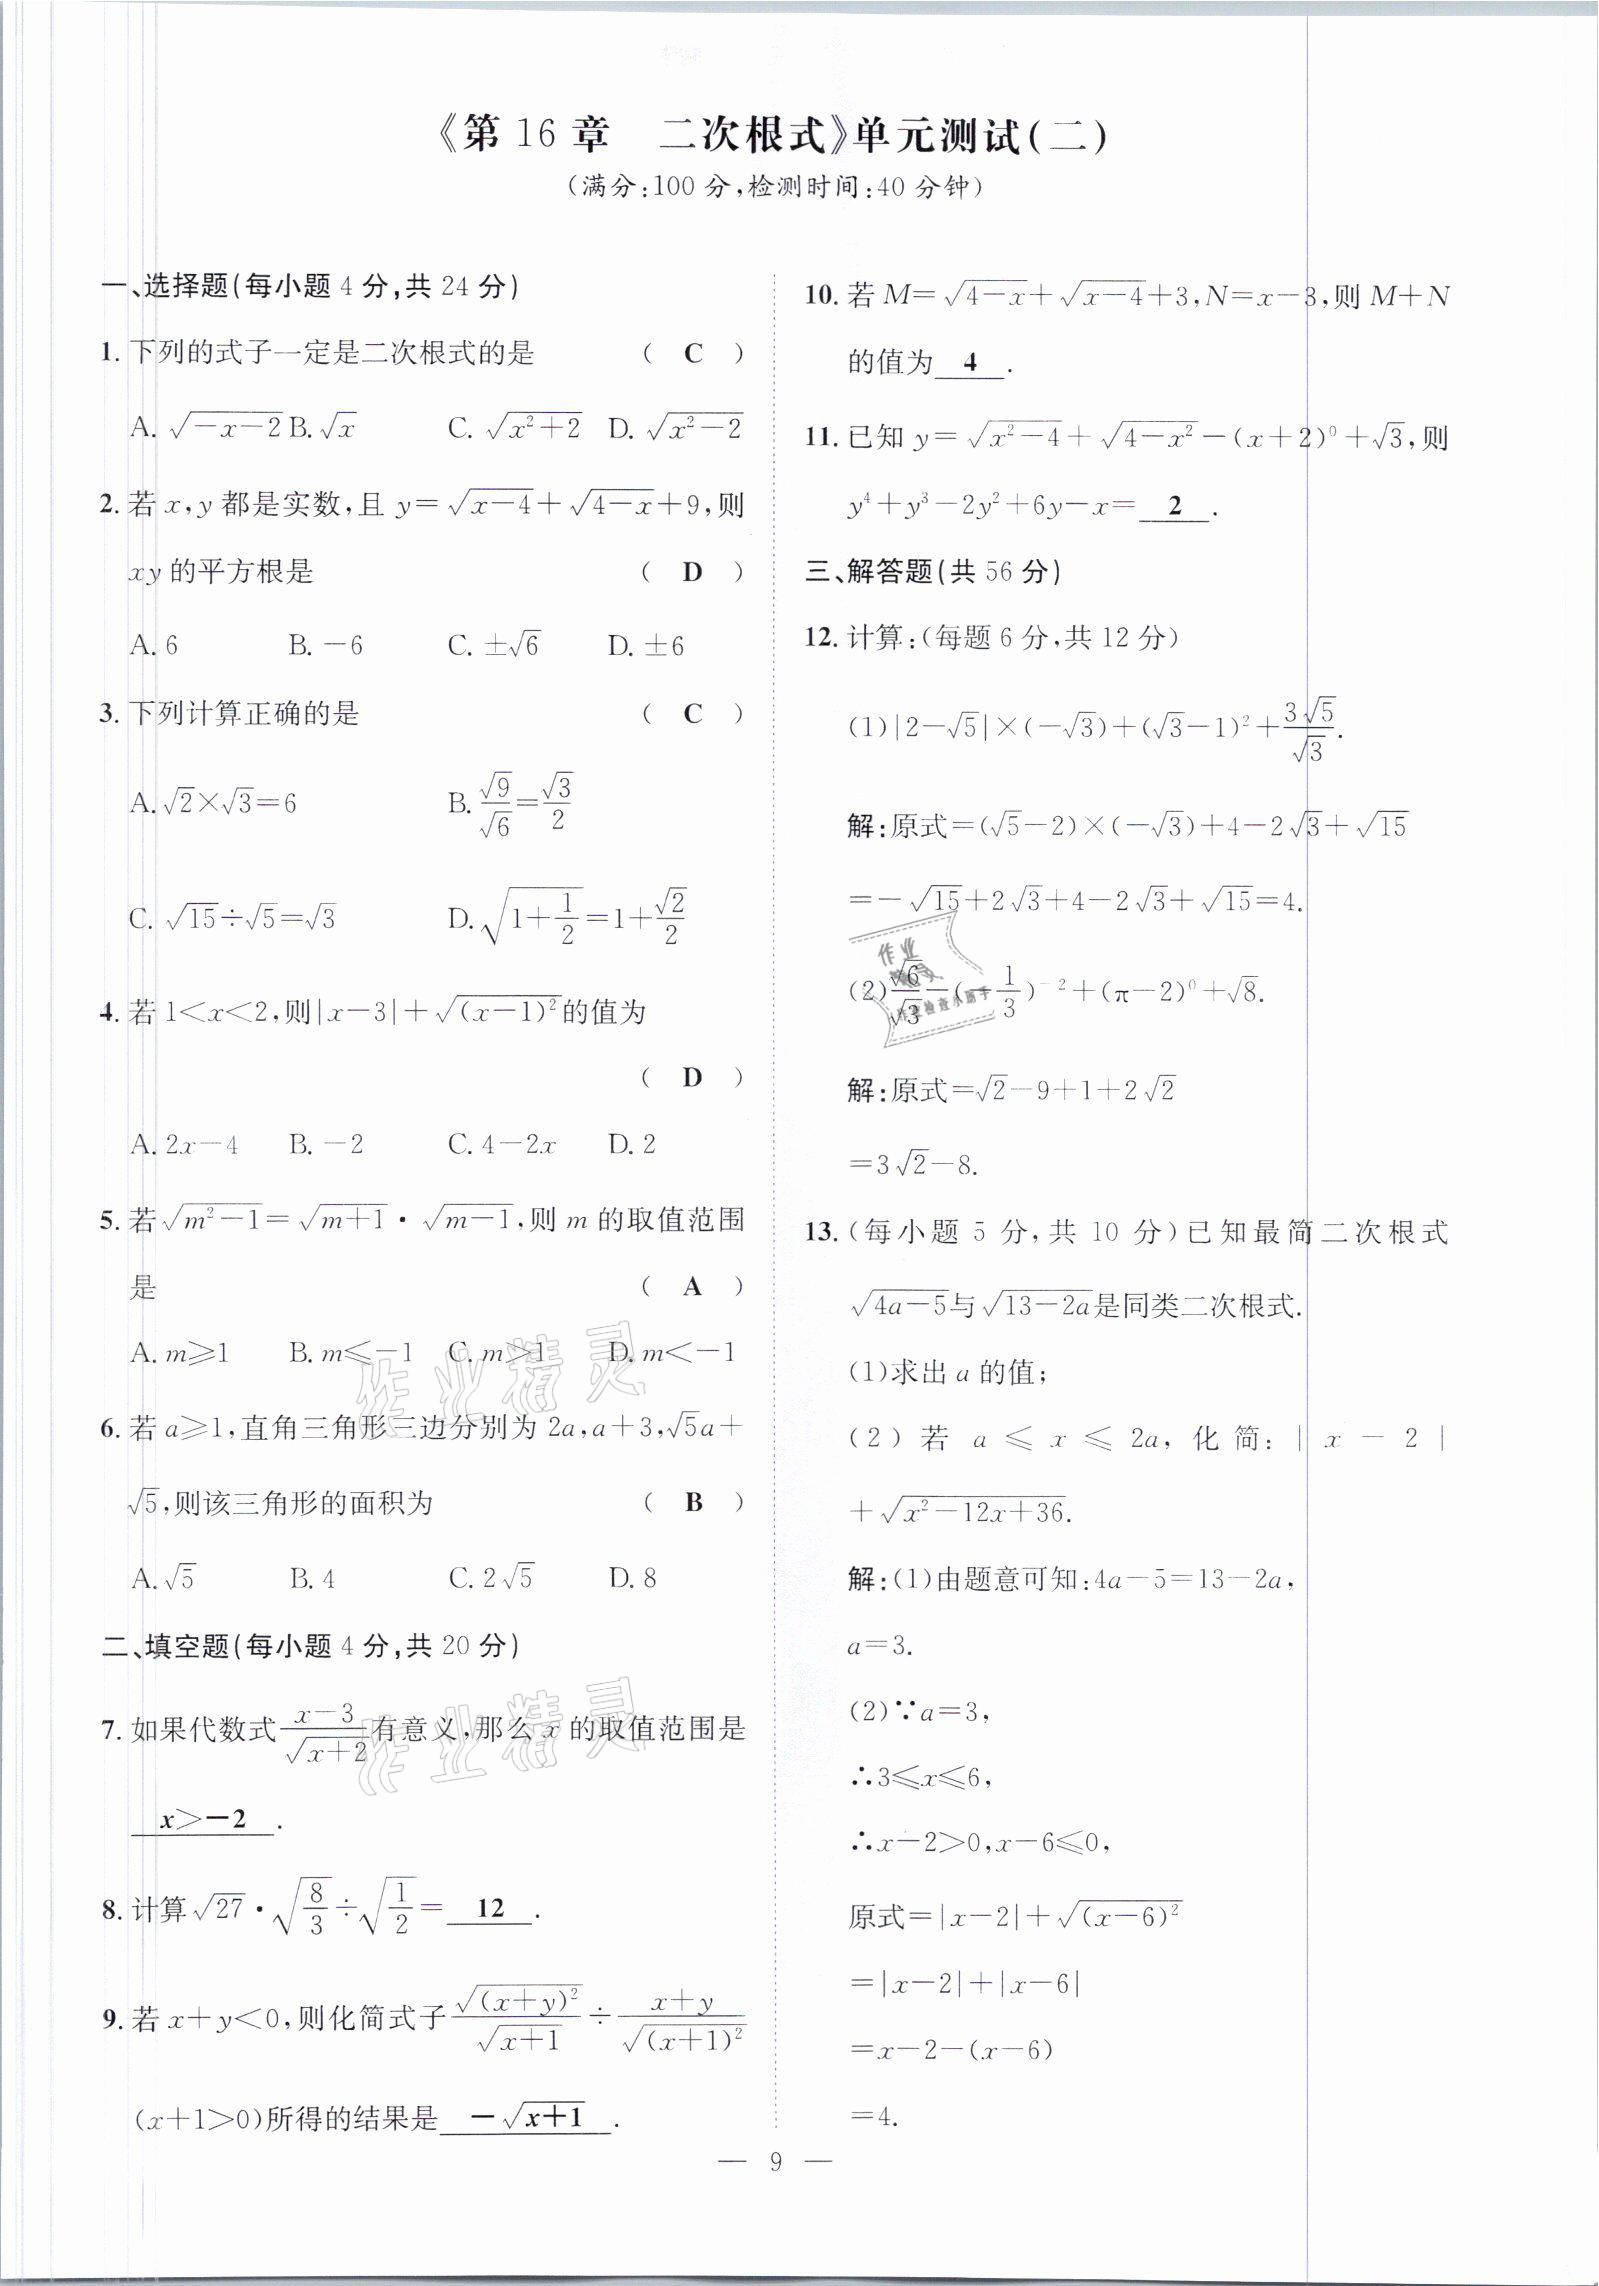 《第16章　二次根式》单元测试(二)
(满分:100分,检测时间:40分钟)
一、选择题(每小题4分,共24分)
1. 下列的式子一定是二次根式的是 ( C )
A. √(-x-2) B. √x C. √(x²+2) D. √(x²-2)
2. 若x,y都是实数,且y=√(x-4)+√(4-x)+9,则
xy的平方根是 ( D )
A. 6 B. -6 C. ±√6 D. ±6
3. 下列计算正确的是 ( C )
A. √2×√3=6 B. √9/√6=√3/2
C. √15÷√5=√3 D. √(1+1/2)=1+√2/2
4. 若1<x<2,则|x-3|+√((x-1)²)的值为
( D )
A. 2x-4 B. -2 C. 4-2x D. 2
5. 若√(m²-1)=√(m+1)·√(m-1),则m的取值范围
是 ( A )
A. m≥1 B. m≤-1 C. m>1 D. m<-1
6. 若a≥1,直角三角形三边分别为2a,a+3,√5a+
√5,则该三角形的面积为 ( B )
A. √5 B. 4 C. 2√5 D. 8
二、填空题(每小题4分,共20分)
7. 如果代数式(x-3)/√(x+2)有意义,那么x的取值范围是
x>-2.
8. 计算√27·√(8/3)÷√(1/2)= 12.
9. 若x+y<0,则化简式子√((x+y)²)/√(x+1)÷(x+y)/√((x+1)²)
(x+1>0)所得的结果是 -√(x+1).
10. 若M=√(4-x)+√(x-4)+3,N=x-3,则M+N
的值为 4.
11. 已知y=√(x²-4)+√(4-x²)-(x+2)⁰+√3,则
y⁴+y³-2y²+6y-x= 2.
三、解答题(共56分)
12. 计算:(每题6分,共12分)
(1)|2-√5|×(-√3)+(√3-1)²+3√5/√3.
解:原式=(√5-2)×(-√3)+4-2√3+√15
=-√15+2√3+4-2√3+√15=4.
(2)√6/√3-(-1/3)⁻²+(π-2)⁰+√8.
解:原式=√2-9+1+2√2
=3√2-8.
13. (每小题5分,共10分)已知最简二次根式
√(4a-5)与√(13-2a)是同类二次根式.
(1)求出a的值;
(2)若a≤x≤2a,化简:|x-2|
+√(x²-12x+36).
解:(1)由题意可知:4a-5=13-2a,
a=3.
(2)∵a=3,
∴3≤x≤6,
∴x-2>0,x-6≤0,
原式=|x-2|+√((x-6)²)
=|x-2|+|x-6|
=x-2-(x-6)
=4.
— 9 —
作业精灵
作业精灵
作业精灵
作业检查小助手